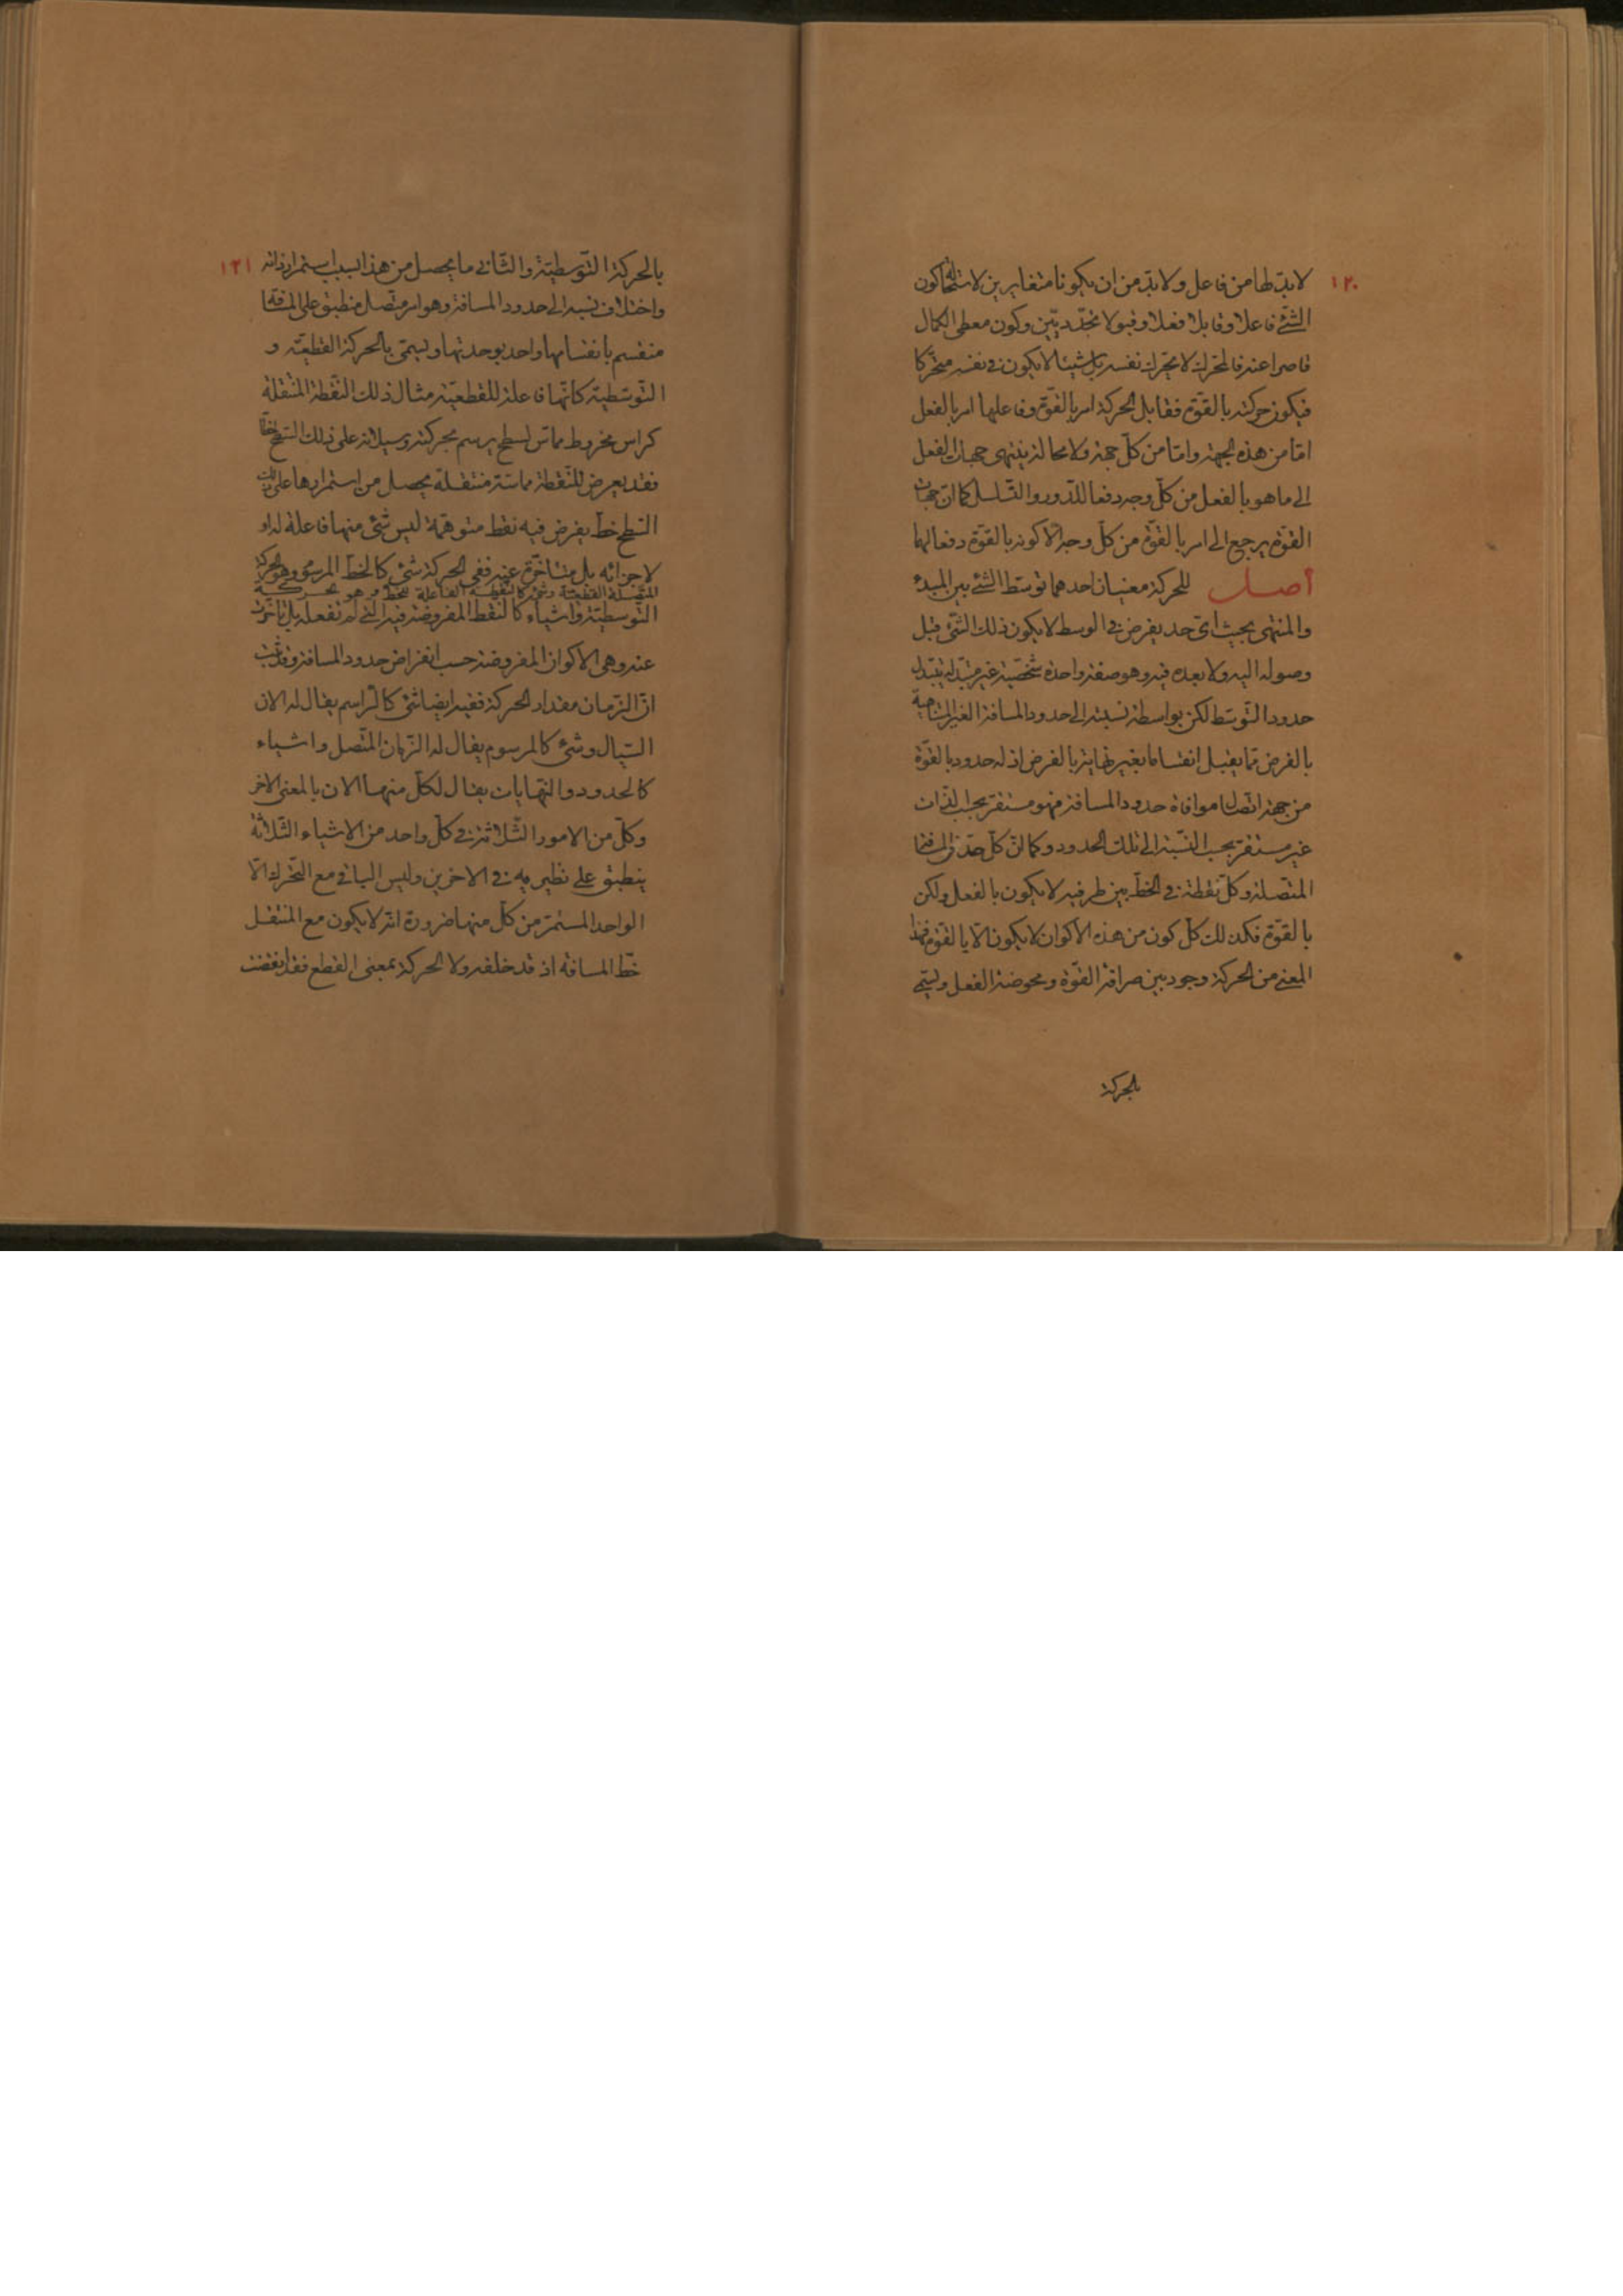 ١٢٠
لابدّ لها من فاعل ولابدّ من ان يكونا متغايرين لاستحالة كون
الشئ فاعلا وقابلا فعلا وقبولا تجدّديّين وكون معطى الكمال
قاصرا عنه فالمحرك لا يحرك نفسه بل شيئا لا يكون فى نفسه متحركا
فيكون حركته بالقوّة فقابل الحركة امر بالقوّة وفاعلها امر بالفعل
امّا من هذه الجهة وامّا من كلّ جهة ولا محالة ينتهى جهات الفعل
الى ما هو بالفعل من كلّ وجه دفعا للدّور والتّسلسل كما انّ جهات
القوّة يرجع الى امر بالقوّة من كلّ وجه الّا كونه بالقوّة دفعا لهما
أصـل للحركة معنيان احدهما توسّط الشئ بين المبدء
والمنتهى بحيث اىّ حد يفرض فى الوسط لا يكون ذلك الشّئ قبل
وصوله اليه ولا بعده فيه وهو صفة واحدة شخصيّة غير متبدّلة بتبدّل
حدود التّوسّط لكن بواسطة نسبته الى حدود المسافة الغير المتناهية
بالفرض ممّا يقبل انقساما بغير نهاية بالفرض اذ له حدود بالقوّة
من جهة اتّصال موافاة حدود المسافة فهو مستقرّ بحسب الذّات
غير مستقرّ بحسب النّسبة الى تلك الحدود وكما انّ كلّ حدّ فى المسافة
المتصلة وكلّ نقطة فى الخطّ بين طرفيه لا يكون بالفعل ولكن
بالقوّة فكذلك كلّ كون من هذه الأكوان لا يكون الّا بالقوّة فهذا
المعنى من الحركة وجود بين صرافة القوّة ومحوضة الفعل ويسمّى
بالحركة
١٢١
بالحركة التّوسطيّة والثّانى ما يحصل من هذا بسبب استمرار ذاته
واختلاف نسبه الى حدود المسافة وهو امر متّصل منطبق على المسافة
منقسم بانقسامها واحد بوحدتها ويسمّى بالحركة القطعيّة و
التّوسّطية كانّها فاعلة للقطعيّة مثال ذلك النّقطة المنتقلة
كراس مخروط مماسّ لسطح يرسم بحركته وسيلانه على ذلك السّطح خطّا
فقد يعرض للنّقطة مماسّة منتقلة يحصل من استمرارها على ذلك
السّطح خطّ يفرض فيه نقط متوهّمة ليس شئ منها فاعلة له او
لاجزائه بل متأخّرة عنه ففى الحركة شئ كالخطّ المرسوم وهو الحركة
المتّصلة القطعيّة وشئ كالنقطة الفاعلة للخطّ وهو الحركة
التّوسطيّة واشياء كالنقط المفروضة فيه الّتى لم تفعله بل تأخّرت
عنه وهى الاكوان المفروضة حسب انفراض حدود المسافة وقد ثبت
انّ الزّمان مقدار الحركة ففيه ايضا شئ كالرّاسم يقال له الان
السّيال وشئ كالمرسوم يقال له الزّمان المتّصل واشياء
كالحدود والنّهايات يقال لكلّ منها الان بالمعنى الاخر
وكلّ من الامور الثّلاثة فى كلّ واحد من الاشياء الثّلاثة
ينطبق على نظيريه فى الاخرين وليس الباقى مع التّحرك الّا
الواحد المستمرّ من كلّ منها ضرورة انّه لا يكون مع المنتقل
خطّ المسافة اذ قد خلفه ولا الحركة بمعنى القطع فقد انقضت